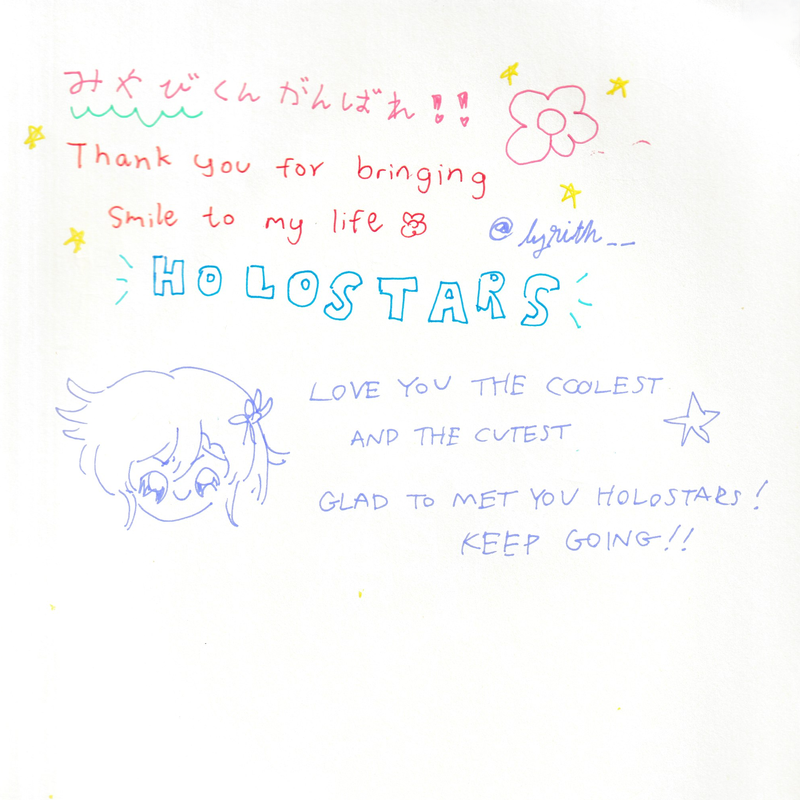 みやびくんがんばれ!!
Thank you for bringing
Smile to my life
@lyrith__
HOLOSTARS
LOVE YOU THE COOLEST
AND THE CUTEST
GLAD TO MET YOU HOLOSTARS!
KEEP GOING!!